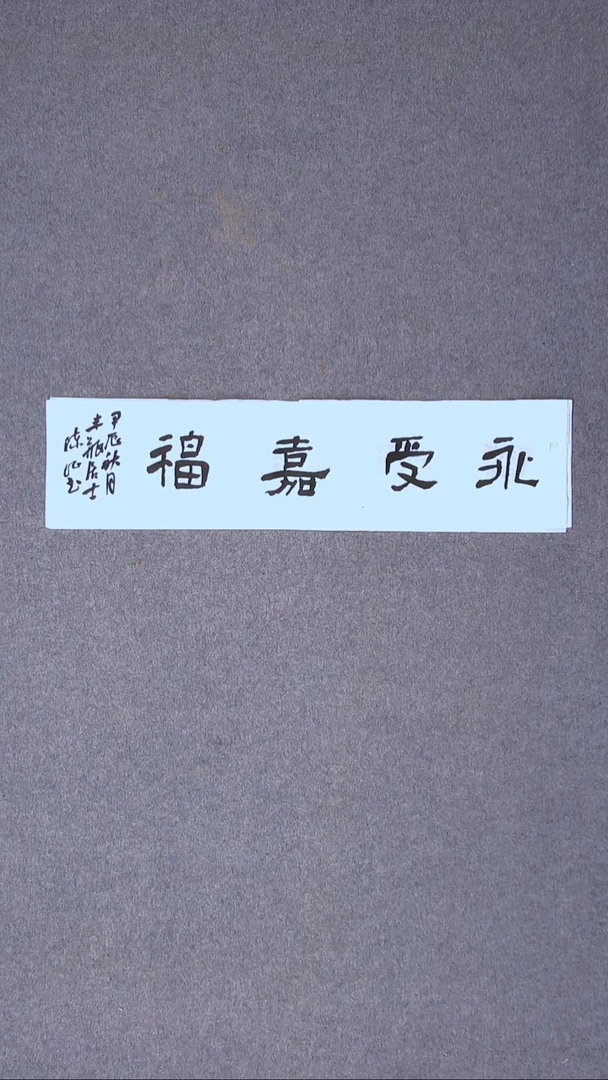 永受嘉福
甲辰秋月
居士
陈书